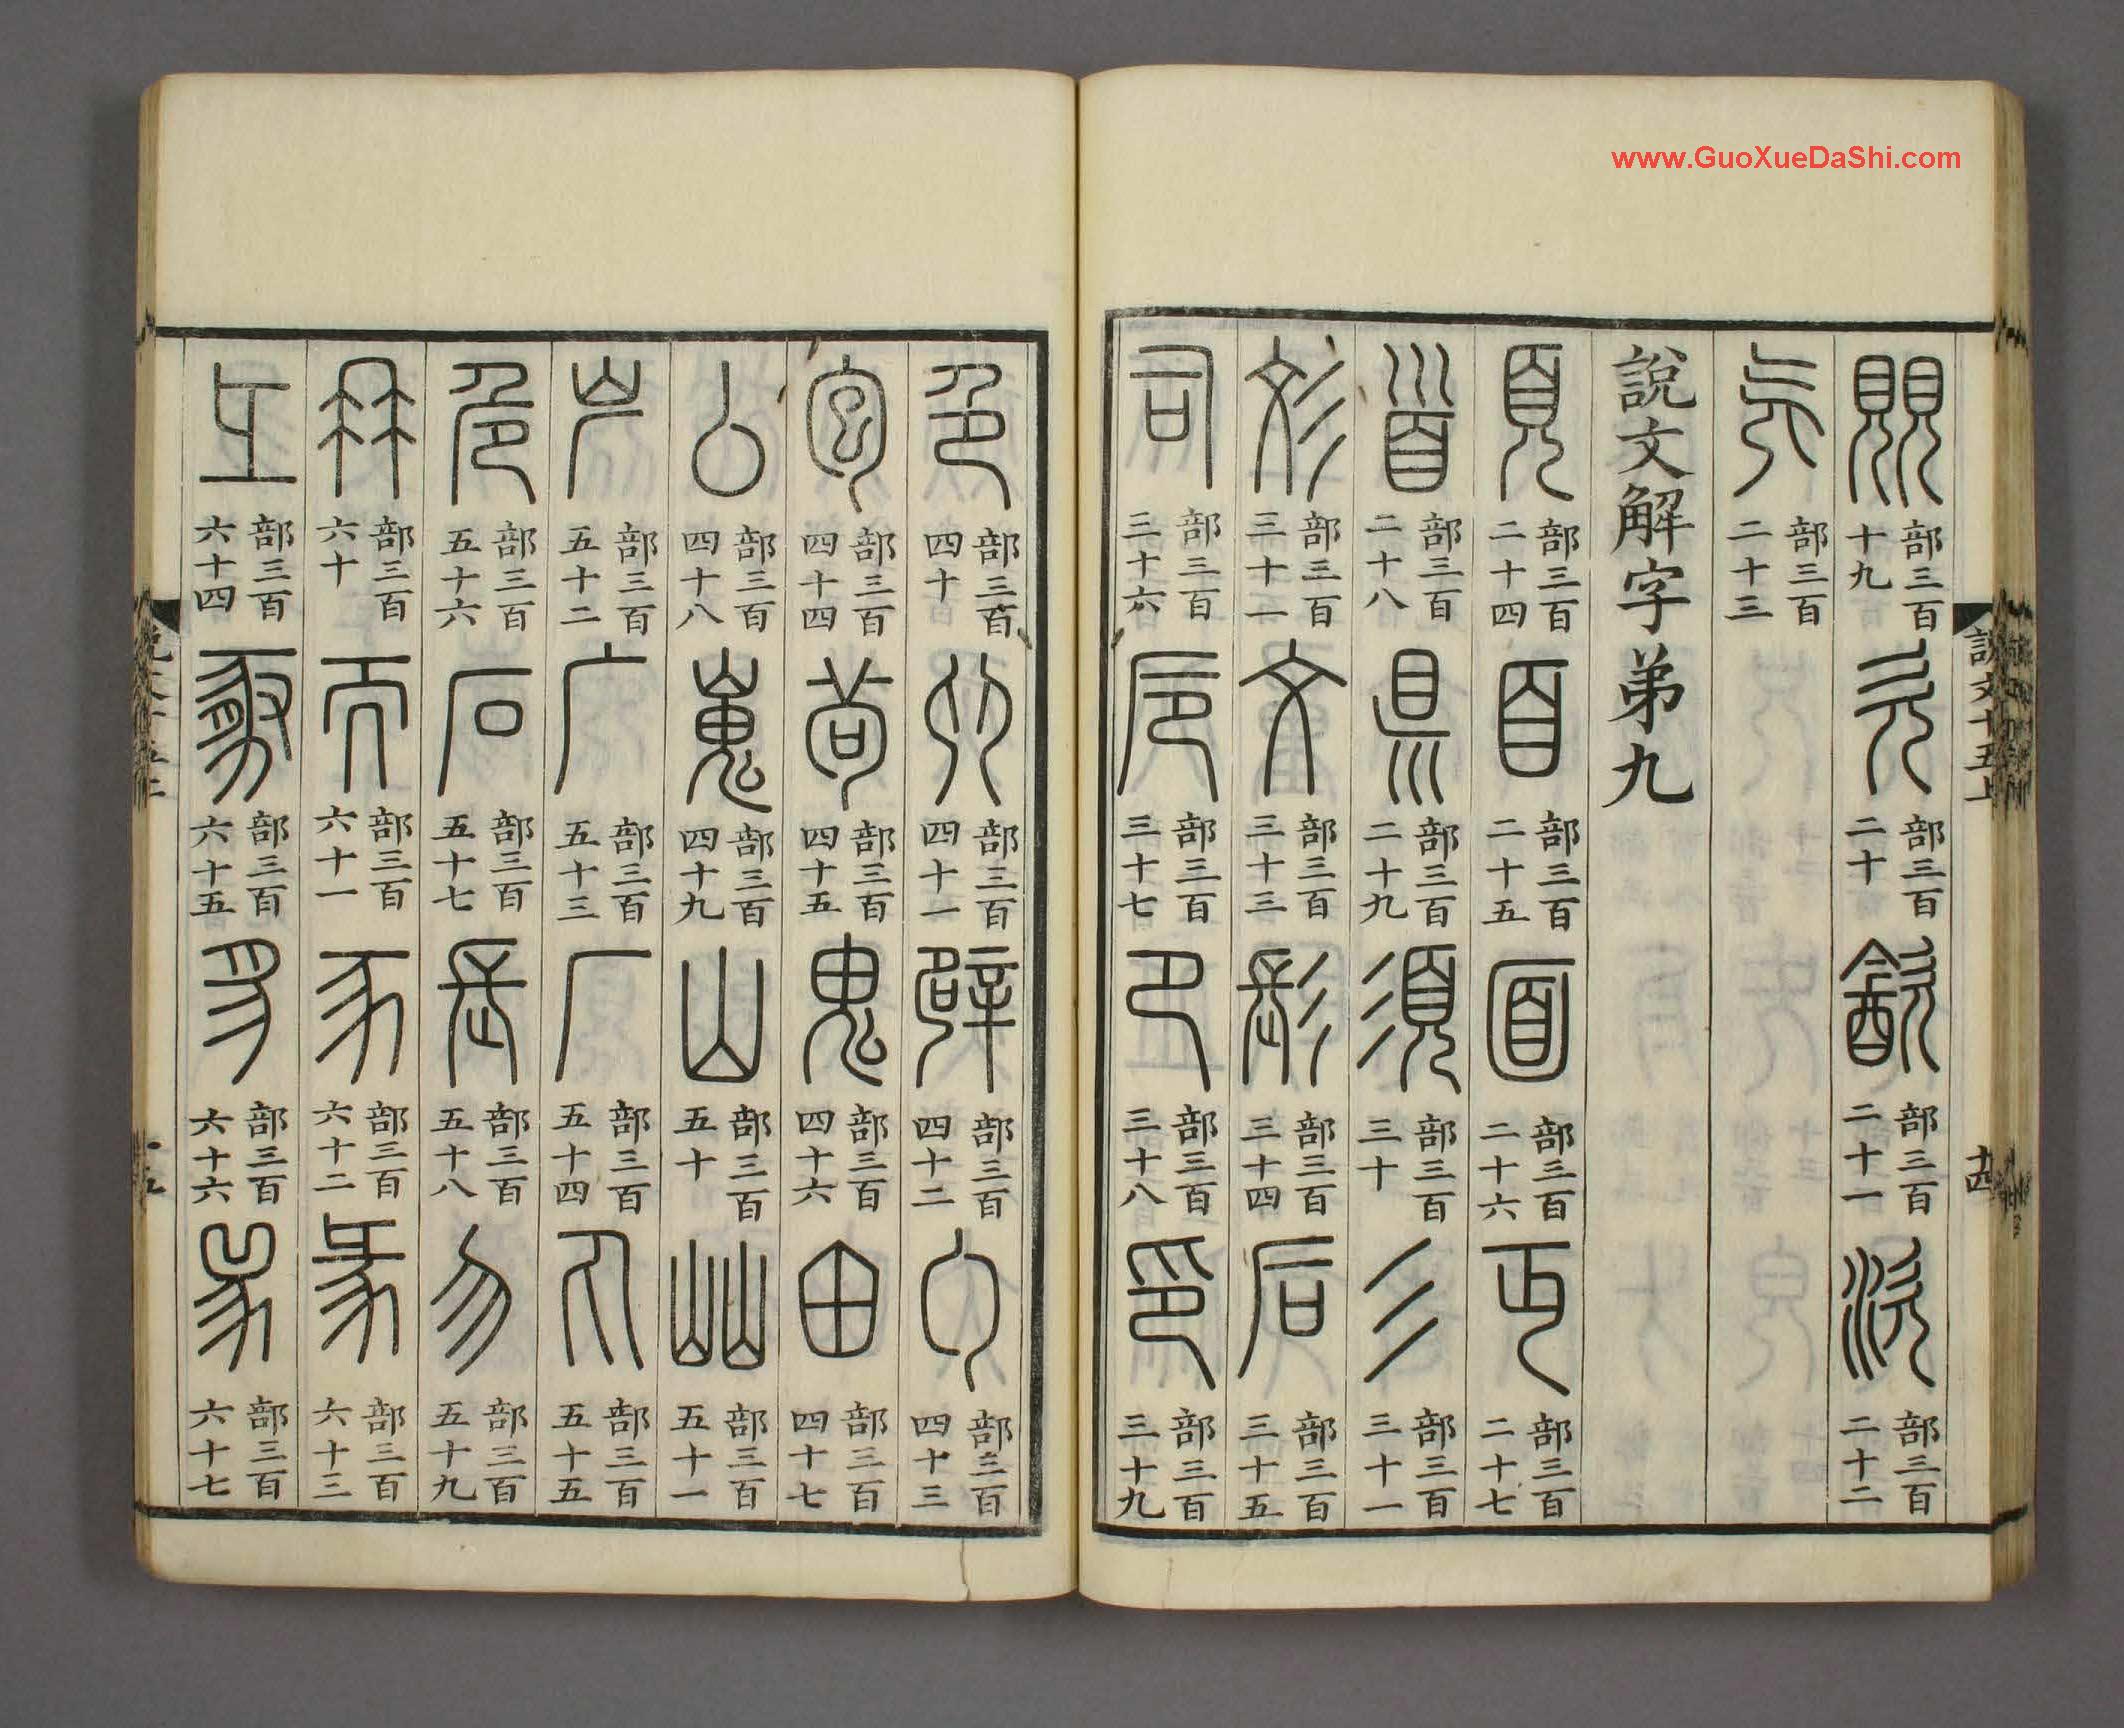 www.GuoXueDaShi.com
說文十五上
十四
覞 部三百十九 欠 部三百二十 㱃 部三百二十一 㳄 部三百二十二
旡 部三百二十三
說文解字弟九
頁 部三百二十四 𦣻 部三百二十五 面 部三百二十六 丏 部三百二十七
首 部三百二十八 県 部三百二十九 須 部三百三十 彡 部三百三十一
彣 部三百三十一 文 部三百三十三 髟 部三百三十四 后 部三百三十五
司 部三百三十六 卮 部三百三十七 卪 部三百三十八 印 部三百三十九
色 部三百四十 𠨍 部三百四十一 辟 部三百四十二 勹 部三百四十三
包 部三百四十四 茍 部三百四十五 鬼 部三百四十六 甶 部三百四十七
厶 部三百四十八 嵬 部三百四十九 山 部三百五十 屾 部三百五十一
屵 部三百五十二 广 部三百五十三 厂 部三百五十四 丸 部三百五十五
危 部三百五十六 石 部三百五十七 長 部三百五十八 勿 部三百五十九
冄 部三百六十 而 部三百六十一 豕 部三百六十二 㣇 部三百六十三
彑 部三百六十四 豚 部三百六十五 豸 部三百六十六 𤉡 部三百六十七